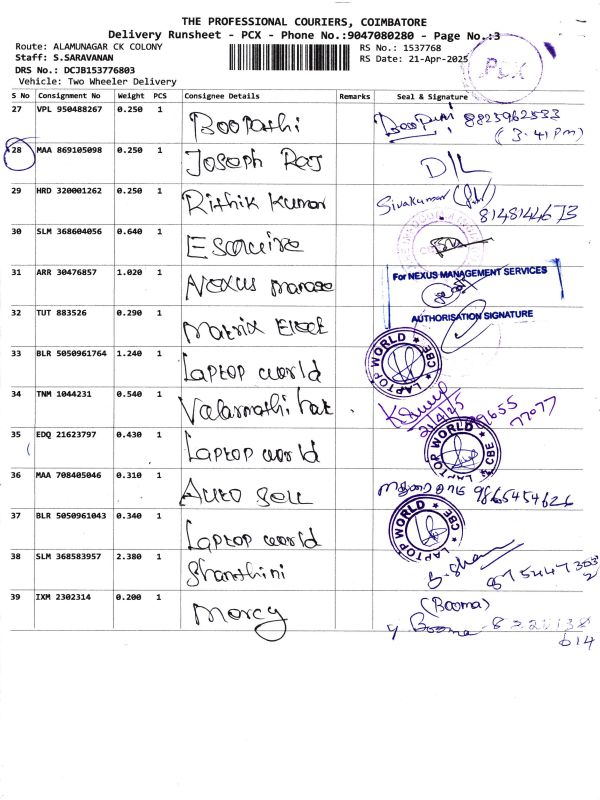 THE PROFESSIONAL COURIERS, COIMBATORE
Delivery Runsheet - PCX - Phone No.:9047080280 - Page No.:3
Route: ALAMUNAGAR CK COLONY
Staff: S.SARAVANAN
DRS No.: DCJB153776803
Vehicle: Two Wheeler Delivery
RS No.: 1537768
RS Date: 21-Apr-2025
PCX
S No Consignment No Weight PCS Consignee Details Remarks Seal & Signature
27 VPL 950488267 0.250 1 Boopathi 8825962533
(3.41 Pm)
28 MAA 869105098 0.250 1 Joseph Raj D/L
29 HRD 320001262 0.250 1 Rithik Kumar Sivakumar
8148144673
30 SLM 368604056 0.640 1 Esquire
31 ARR 30476857 1.020 1 Nexus Manage For NEXUS MANAGEMENT SERVICES
32 TUT 883526 0.290 1 Matrix Elect AUTHORISATION SIGNATURE
33 BLR 5050961764 1.240 1 Laptop world LAPTOP WORLD CBE
34 TNM 1044231 0.540 1 Valarmathi 21/4/25 99655
77077
35 EDQ 21623797 0.430 1 Laptop world LAPTOP WORLD CBE
36 MAA 708405046 0.310 1 Auto 9865454626
37 BLR 5050961043 0.340 1 Laptop world LAPTOP WORLD CBE
38 SLM 368583957 2.380 1 Shanthini
39 IXM 2302314 0.200 1 Mercy (Booma)
Booma
614